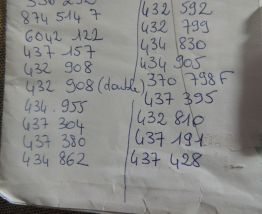 874 514 7
6042 122
437 157
432 908
432 908 (double)
434.955
437 304
437 380
434 862
432 592
432 799
434 830
434 905
370 798F
437 395
432 810
437 191
437 428